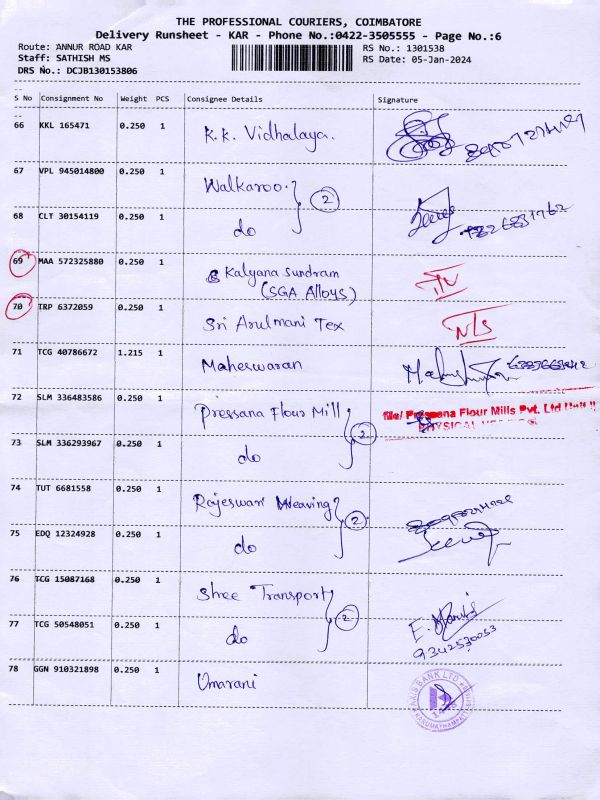 THE PROFESSIONAL COURIERS, COIMBATORE
Delivery Runsheet - KAR - Phone No.:0422-3505555 - Page No.:6
Route: ANNUR ROAD KAR RS No.: 1301538
Staff: SATHISH MS RS Date: 05-Jan-2024
DRS No.: DCJB130153806
S No Consignment No Weight PCS Consignee Details Signature
66 KKL 165471 0.250 1 K.K. Vidhalaya.
67 VPL 945014800 0.250 1 Walkaroo. 2
68 CLT 30154119 0.250 1 do
69 MAA 572325880 0.250 1 Kalyana Sundram
(SGA Alloys)
70 TRP 6372059 0.250 1 Sri Arulmani Tex N/S
71 TCG 40786672 1.215 1 Maheswaran
72 SLM 336483586 0.250 1 Pressana Flour Mill 2 Pressana Flour Mills Pvt. Ltd
73 SLM 336293967 0.250 1 do
74 TUT 6681558 0.250 1 Rajeswari Weaving 2
75 EDQ 12324928 0.250 1 do
76 TCG 15087168 0.250 1 Shree Transport 2
77 TCG 50548051 0.250 1 do
9342530053
78 GGN 910321898 0.250 1 Umarani AXIS BANK LTD